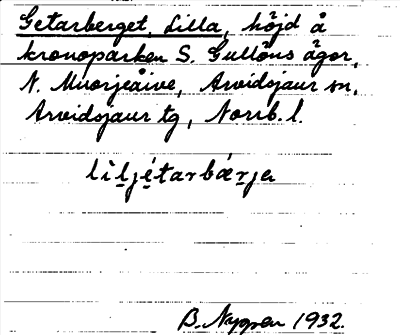 Getarberget, Lilla, höjd å
kronoparken S. Gullöns ägor,
N. Muorjeåive, Arvidsjaur sn,
Arvidsjaur tg, Norrb. l.
lìljétarbárja
B. Nygren 1932.